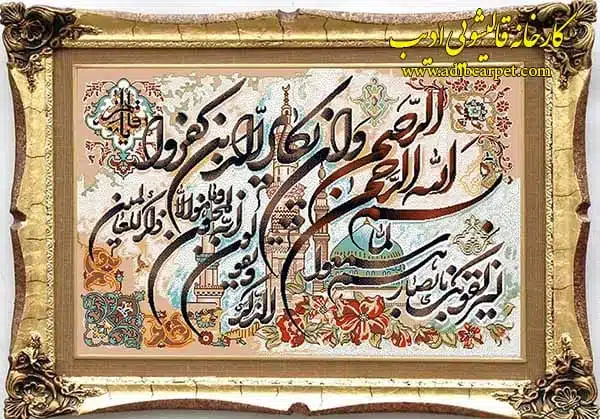 کارخانه قالیشویی ادیب
www.adibcarpet.com
بسم الله الرحمن الرحیم
وان یکاد الذین کفروا
لیزلقونک بابصارهم لما سمعوا
الذکر ویقولون
انه لمجنون وما هو الا
ذکر للعالمین